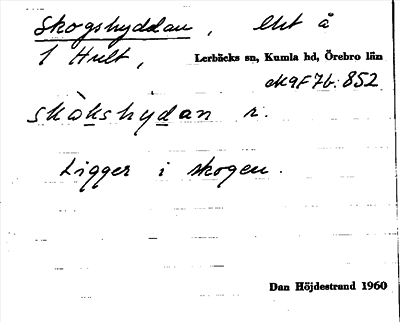 Skogshyddan, lht å
1 Hult, Lerbäcks sn, Kumla hd, Örebro län
M9F7b: 852
skòkshỳdan r.
Ligger i skogen.
Dan Höjdestrand 1960